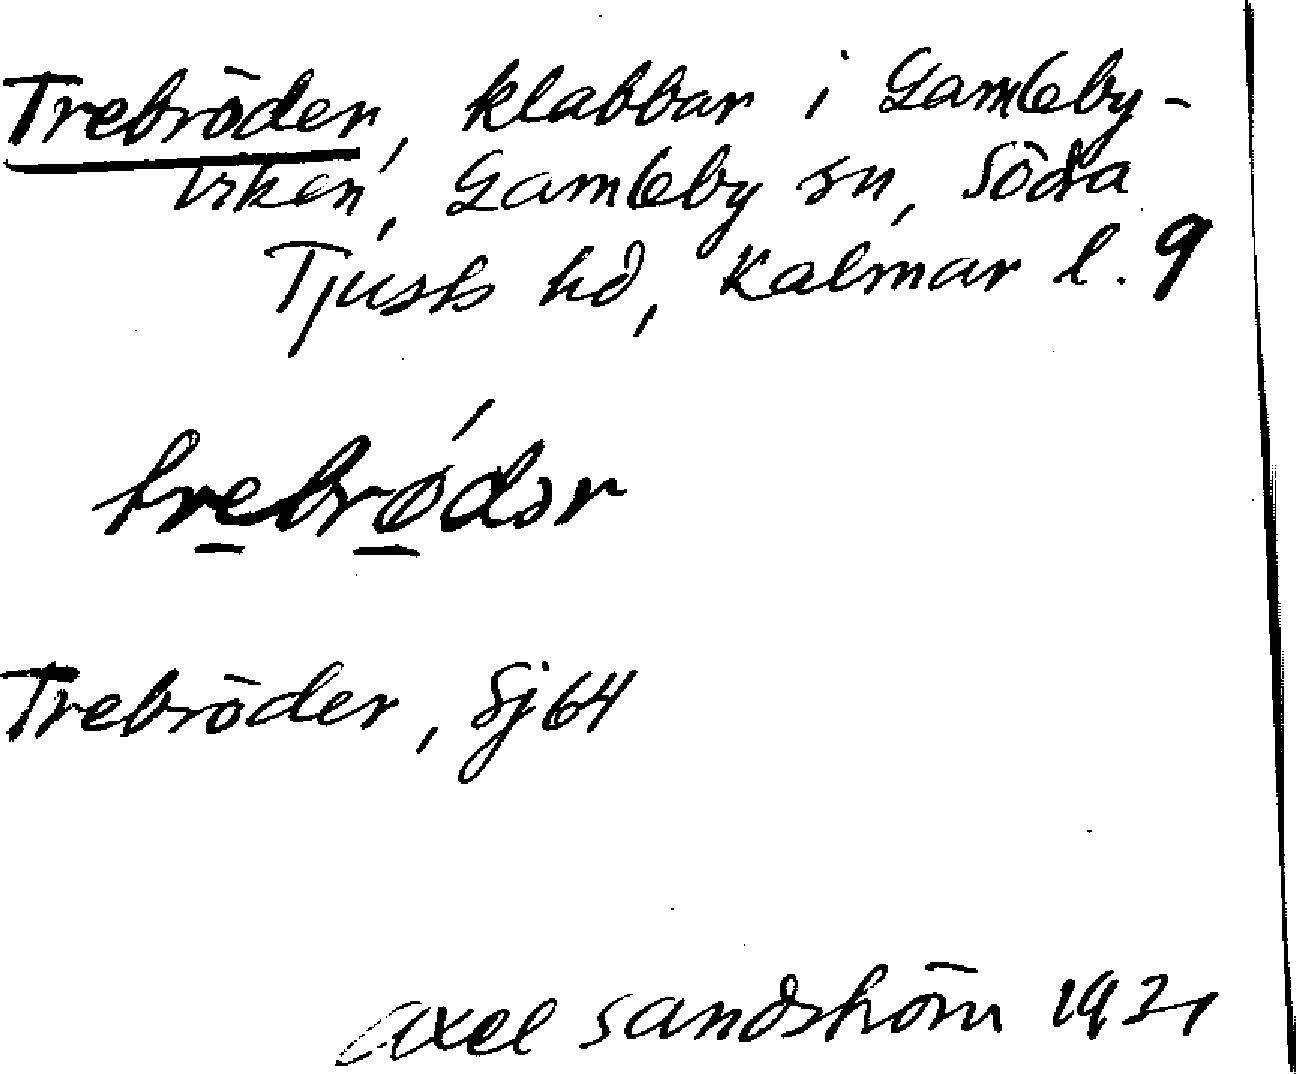 Trebröder, klabbar i Gamleby-
viken, Gamleby sn, Södra
Tjusts hd, Kalmar l. 9
trebrødər
Trebröder, Sj 64
Axel Sandström 1921